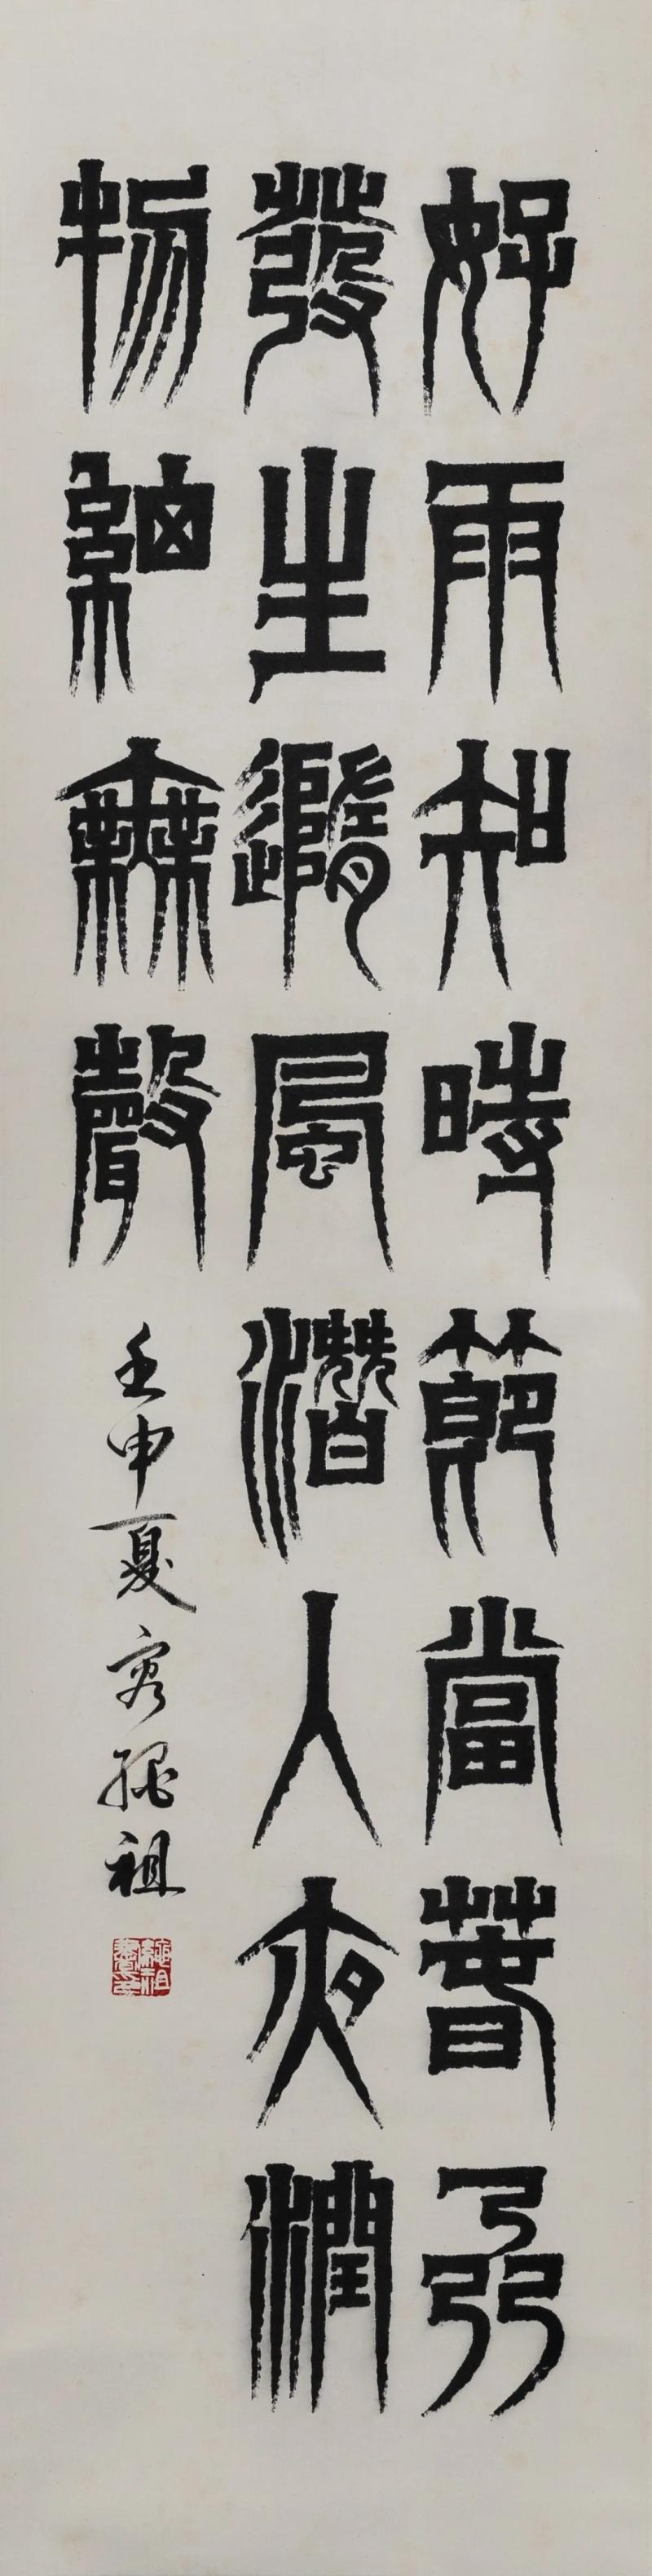 好雨知時節當春乃
發生隨風潛入夜潤
物細無聲
壬申夏容繩祖